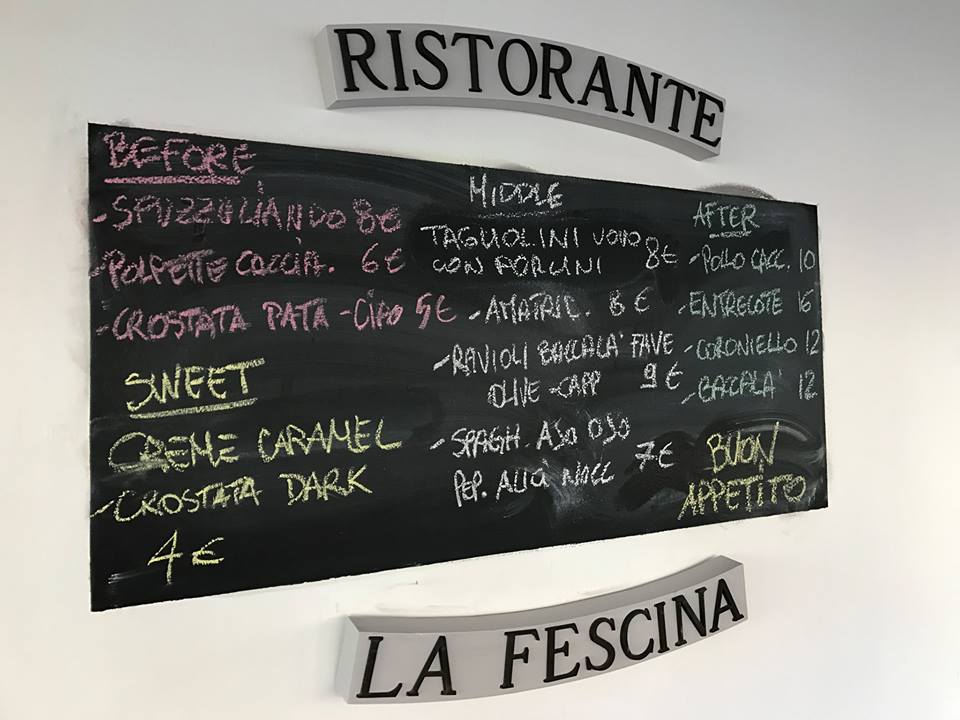 RISTORANTE
BEFORE
-SPUZZULIANDO 8€
-POLPETTE COCCIA. 6€
-CROSTATA PATA-CIPO 5€
SWEET
CREME CARAMEL
-CROSTATA DARK
4€
MIDDLE
TAGLIOLINI UOVO
CON PORCINI 8€
-AMATRIC. 8€
-RAVIOLI BACCALA' FAVE
OLIVE-CAPP 9€
-SPAGH. AJO OJO
PEP. ALICI NOCC 7€
AFTER
-POLLO CACC. 10
-ENTRECOTE 16
-CORONIELLO 12
-BACCALA' 12
BUON
APPETITO
LA FESCINA